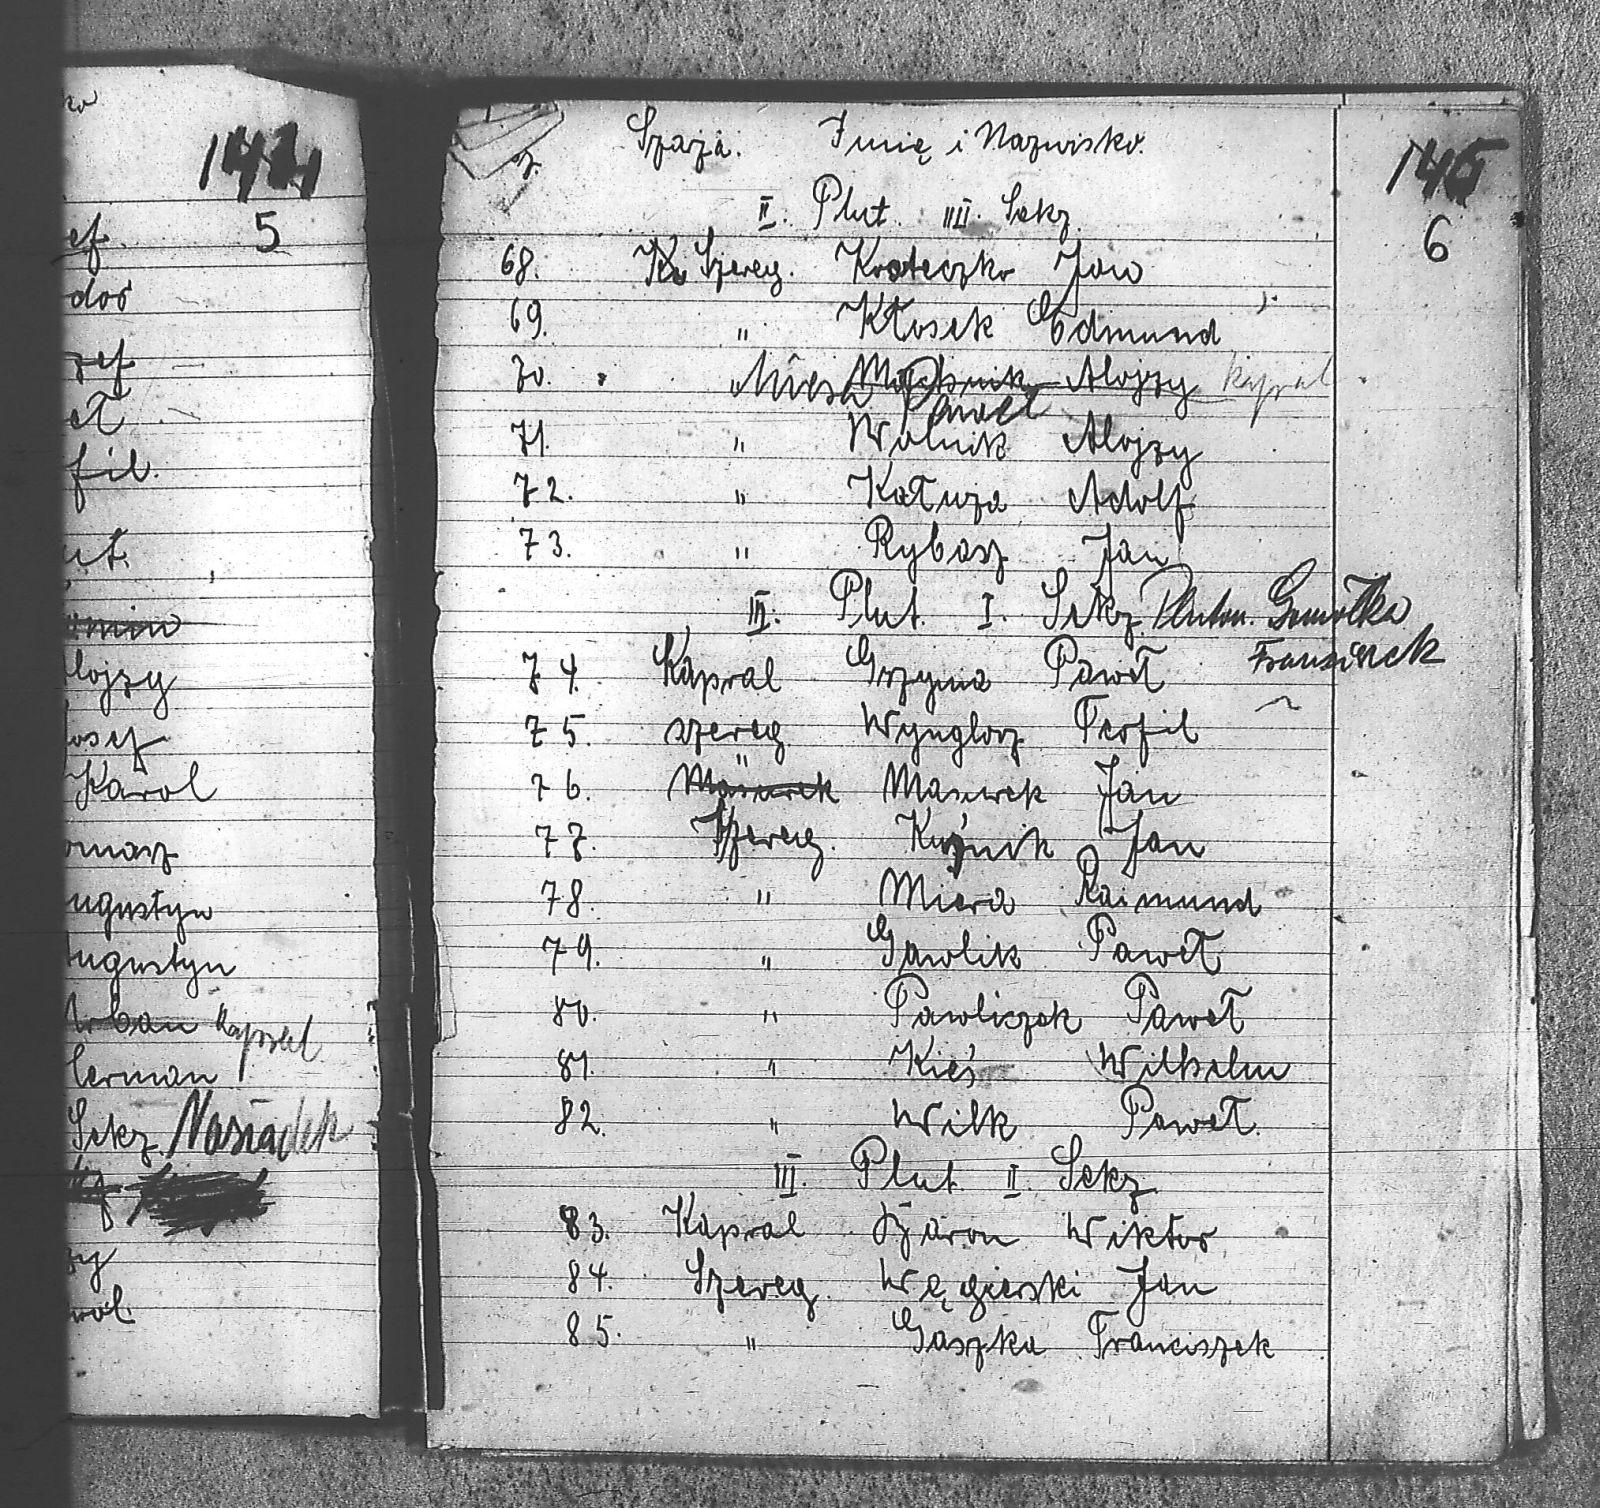 5
ef
dor
zef
et
fil.
ut.
lojzy
Josef
Karol
omasz
ugustyn
ugustyn
Urban kapral
Herman
Sekz. Nasiadek
zy
rol.
145
6
Szaża. Imię i Nazwisko.
II. Plut III. Sekz.
68. Szereg. Krateczko Jan
69. " Kłosek Edmund
70. Alojzy kapral
Paweł
71. " Wolnik Alojzy
72. " Kałuza Adolf
73. " Rybasz Jan
III. Plut. I. Sekz. Pluton. Gmiołka
Franzisek
74. Kapral Grzyma Paweł
75. szereg Wynglorz Teofil
76. Masurek Masurek Jan
77. Szereg. Kuźnik Jan
78. " Miera Raimund
79. " Gawlik Paweł
80. " Pawliczek Paweł
81. " Kieś Wilhelm
82. " Wilk Paweł.
III. Plut II. Sekz
83. Kapral Wiktor
84. Szereg. Węgierski Jan
85. " Gaszka Franciszek